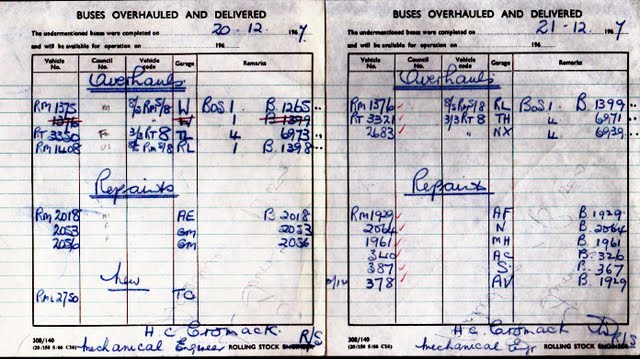 BUSES OVERHAULED AND DELIVERED
The undermentioned buses were completed on 20-12- 1967
and will be available for operation on 196
Vehicle No. Council No. Vehicle code Garage Remarks
Overhauls
RM 1375 8/5 RM5/8 W BOS 1. B.1265
1376 " W 1 B 1399
RT 3350 3/3 RT 8 TL 4 6973
RM 1408 RM 5/8 RL 1 B.1398
Repaints
RM 2018 AE B 2018
2053 GM 2053
2056 GM 2056
New
RML 2750 TO
H C Cromack R/S
308/140
(20/150 5/66 C36) Mechanical Engineer ROLLING STOCK ENGINEER
BUSES OVERHAULED AND DELIVERED
The undermentioned buses were completed on 21-12- 1967
and will be available for operation on 196
Vehicle No. Council No. Vehicle code Garage Remarks
Overhauls
RM 1376 8/5 RM 5/8 RL BOS 1. B 1399
RT 3321 3/3 RT 8 TH 4 6971
2683 " NX 4 6939
Repaints
RM 1929 AF B 1929
2064 N B 2064
1961 MH B 1961
340 AC B. 326
387 S B. 367
378 AV B. 1929
H.C. Cromack
308/140
(20/150 5/66 C36) Mechanical Egr ROLLING STOCK ENGINEER